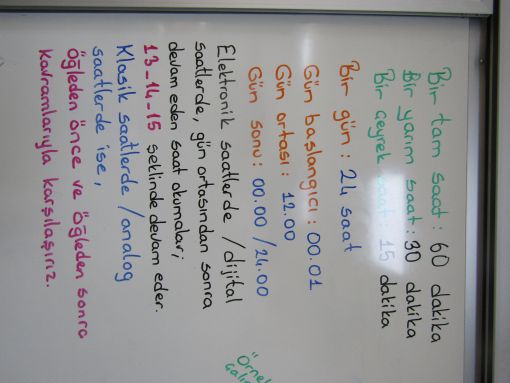 Bir tam saat : 60 dakika
Bir yarım saat : 30 dakika
Bir çeyrek saat : 15 dakika
Bir gün : 24 saat
Gün başlangıcı : 00.01
Gün ortası : 12.00
Gün sonu : 00.00 / 24.00
Elektronik saatlerde / dijital
saatlerde, gün ortasından sonra
devam eden saat okumaları
13_14_15 şeklinde devam eder.
Klasik saatlerde / analog
saatlerde ise,
öğleden önce ve öğleden sonra
kavramlarıyla karşılaşırız.
Örnek